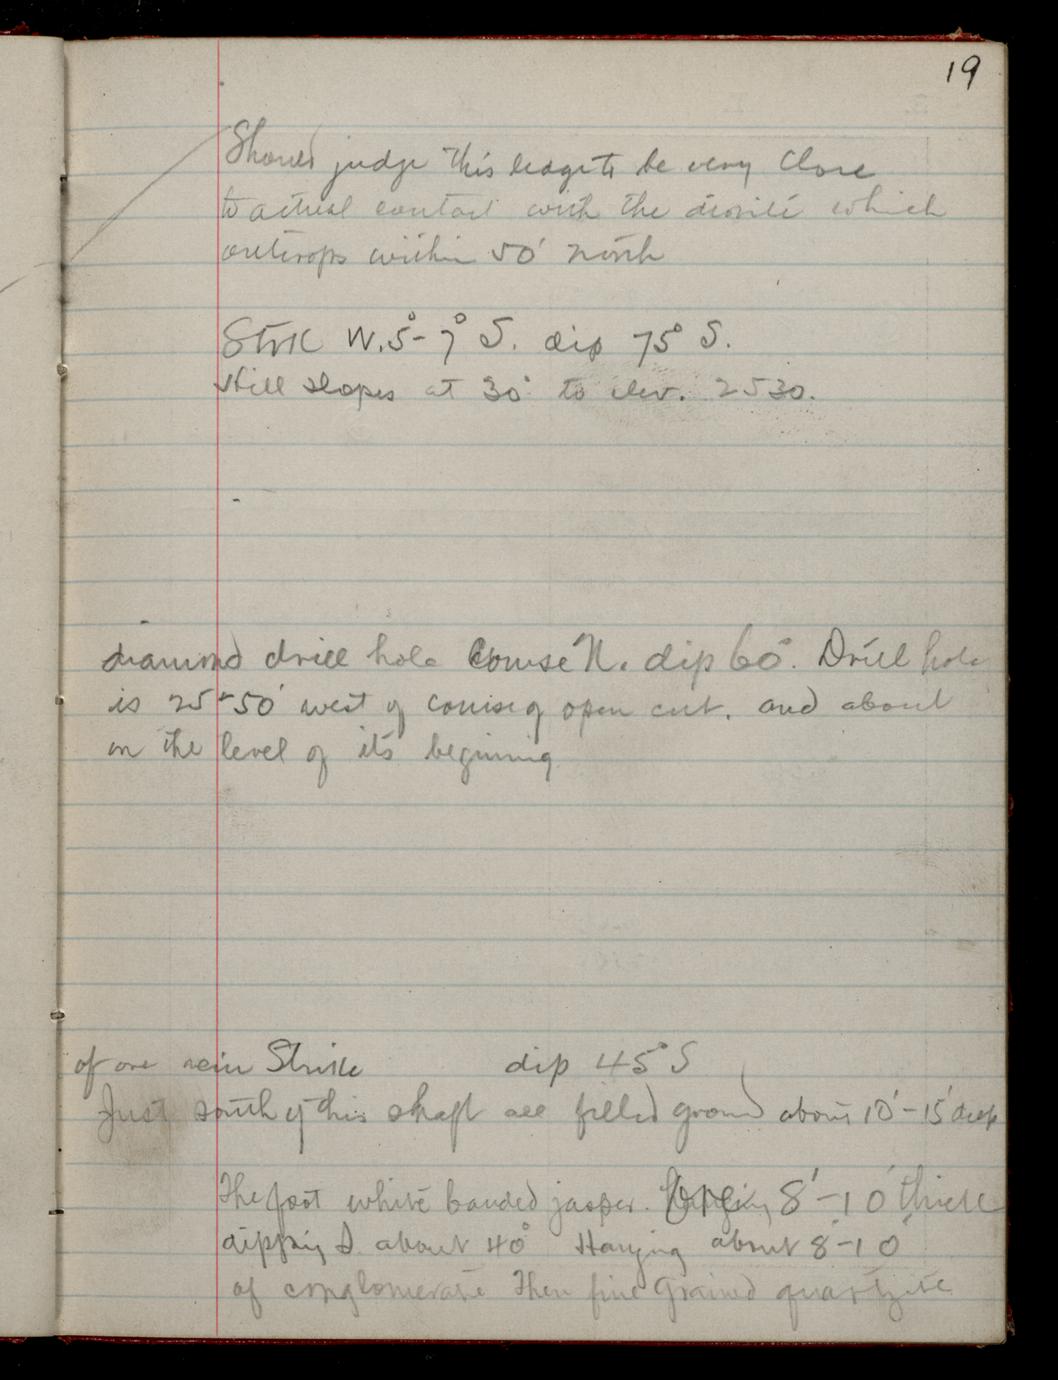 19
Should judge this ledge to be very close
to actual contact with the diorite which
outcrops within 50' north
Strk W. 5°-7° S. dip 75° S.
Hill slopes at 30° to elev. 2530.
diamond drill hole Course N. dip 60°. Drill hole
is 25'-50' west of course of open cut. and about
on the level of its begining
of ore vein Strike dip 45° S
Just south of this shaft all filled ground about 10'-15' deep
The foot white banded jasper. 8'-10' thick
dipping S. about 40° Hanging about 8'-10'
of conglomerate Then fine grained quartzite